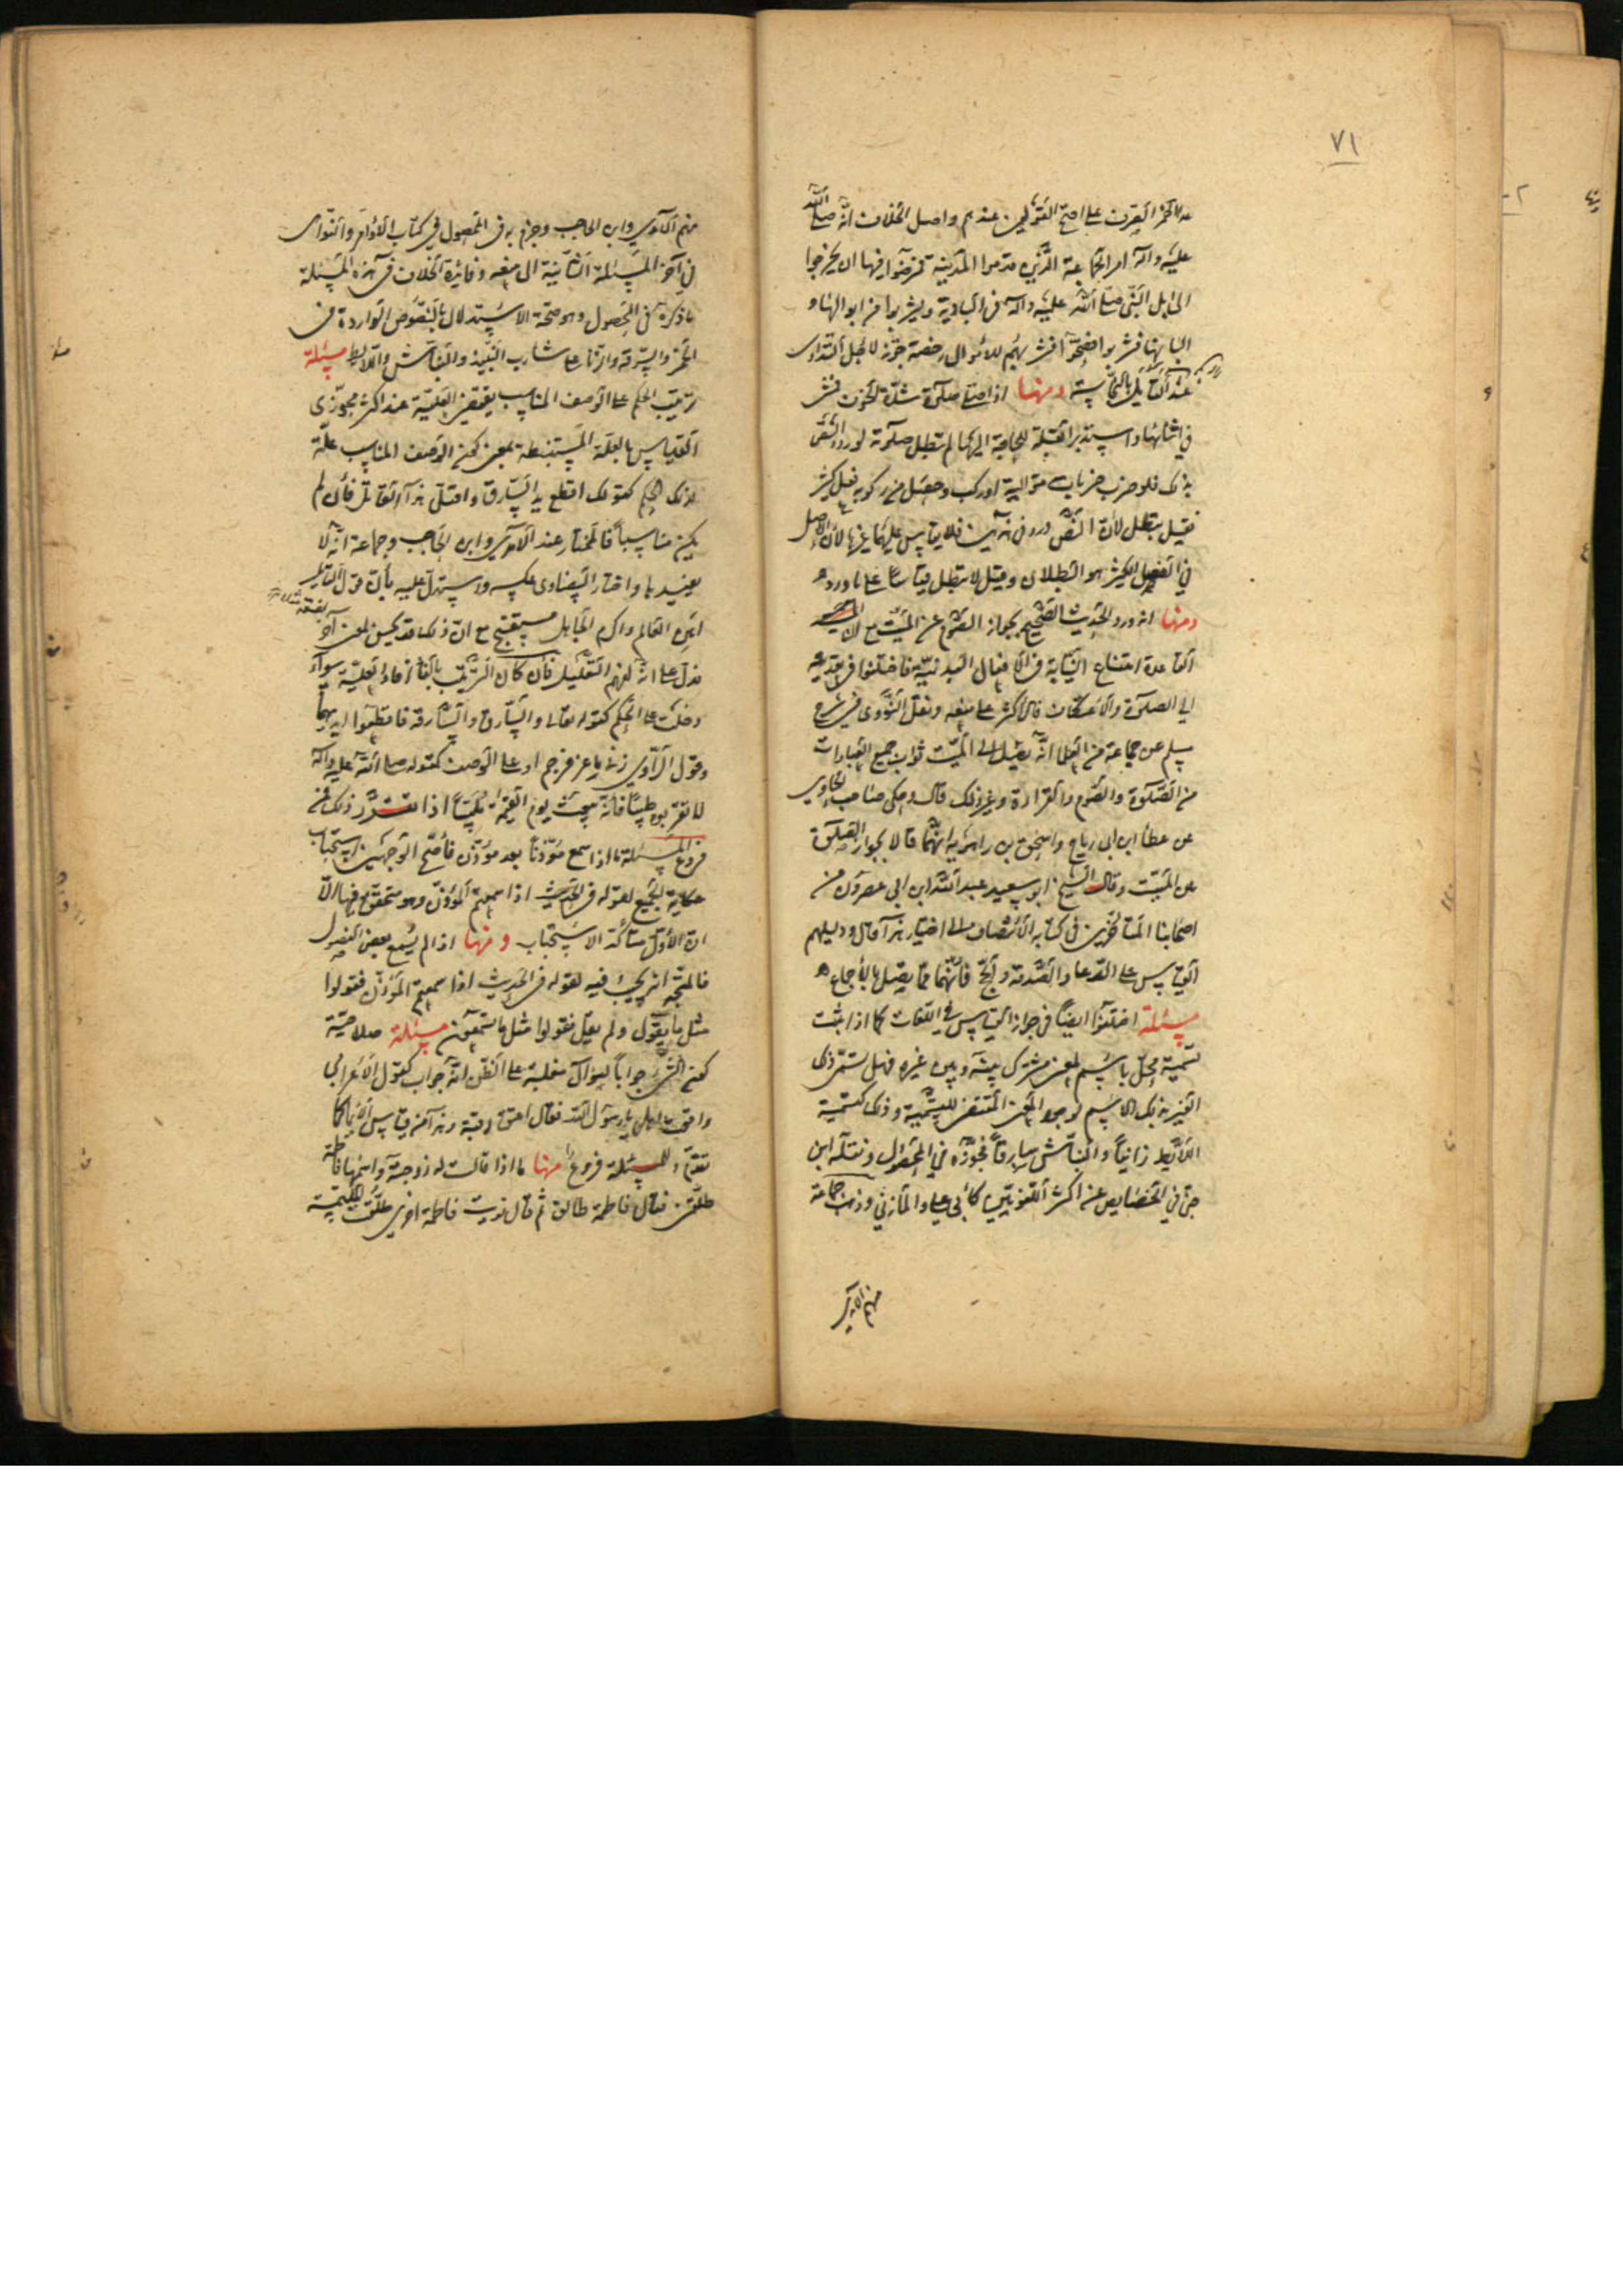 ٧١
علا الخمر الصرف على اصح القولين عندهم واصل الخلاف انّه صلى الله
عليه وآله امر الجماعة الذين قدموا المدينة فمرضوا فيها ان يخرجوا
الى ابل النبي صلى الله عليه وآله في البادية ويشربوا من ابوالها و
البانها فشربوا فصحوا فشربهم للابوال رخصة جوّز لاجل التداوى
عند القائلين بالنجاسة ومنها اذا صلى صلوة شدّة الخوف
في اثنائها واستدبر القبلة للحاجة اليهما لم تبطل صلوته لورود النص
بذلك فلو ضرب ضربات متوالية او ركب وحصل من ركوبه فعل كثير
فقيل تبطل لأن النص ورد في هذين فلا يقاس عليهما غيرهما لأن الاصل
في الفعل الكثير هو البطلان وقيل لا تبطل قياسا على ما ورد
ومنها انه ورد الحديث الصحيح بجواز الصوم عن الميّت مع ان
القاعدة امتناع النيابة في الافعال البدنية فاختلفوا في تعديته
الى الصلوة والاعتكاف فالاكثر على منعه ونقل النووى في شرح
مسلم عن جماعة من العلما انّه يصل الى الميّت ثواب جميع العبادات
من الصلوة والصوم والقراءة وغير ذلك قال وحكى صاحب الحاوي
عن عطا ابن ابى رباح واسحق بن راهويه انّهما قالا بجواز الصلوة
عن الميّت وقال الشيخ ابو سعيد عبد الله ابن ابى عصرون من
اصحابنا المتأخرين في كتابه الانتصاف الى اختيار هذا قال ودليلهم
القياس على الدعا والصدقة والحجّ فانّهما ممّا يصل بالأجماع
مسئلة اختلفوا ايضاً في جواز القياس في اللغات كما اذا ثبت
تسمية محلّ باسم لمعنى مشترك بينه وبين غيره فهل يسمّى ذلك
الغير بذلك الاسم لوجود المعنى المقتضى للتسمية وذلك كتسمية
اللائط زانياً والنبّاش سارقاً فجوّزه في المحصول ونقله ابن
جنّي في الخصايص عن اكثر اللغويّين كابى على والمازني وذهب جماعة
منهم الامدي
منهم الآمدي وابن الحاجب وجزم به في المحصول في كتاب الاوامر والنواهى
في آخر المسئلة الثانية الى منعه وفائدة الخلاف في هذه المسئلة
ما ذكره في المحصول وهو صحّة الاستدلال بالنصوص الواردة في
الخمر والسرقة والزنا على شارب النبيذ والنبّاش واللائط مسئلة
ترتيب الحكم على الوصف المناسب يقتضى العلّية عند اكثر مجوّزى
القياس بالعلّة المستنبطة بمعنى كون الوصف المناسب علّة
لذلك الحكم كقولك اقطع يد السارق واقتل هذا القاتل فان لم
يكن مناسباً فالمختار عند الآمدي وابن الحاجب وجماعة انّه لا
يفيدها واختار البيضاوى عكسه واستدلّ عليه بأنّ قول القائل
اهن العالم واكرم الجاهل مستقبح مع انّ ذلك قد يحسن لمعنى آخر
فدلّ على انّه لفهم التعليل فان كان الترتيب بالفا افاد العلّية سواء
دخلت على الحكم كقوله تعالى والسارق والسارقة فاقطعوا ايديهما
وقول الرّاوي زنى ماعز فرجم او على الوصف كقوله صلى الله عليه وآله
لا تقربوه طيبًا فانّه يبعث يوم القيمة ملبّياً اذا تقرّر ذلك فمن
فروع المسئلة ما اذا سمع مؤذّناً بعد مؤذّن فاصحّ الوجهين استحباب
حكاية الجميع لقوله في الحديث اذا سمعتم المؤذّن وهو متحقّق فيها الّا
انّ الأوّل متأكّد الاستحباب ومنها اذا لم يسمع بعض الفصول
فالمتّجه انّه يجيب فيه لقوله في الحديث اذا سمعتم المؤذّن فقولوا
مثل ما يقول ولم يقل فقولوا مثل ما تسمعون مسئلة صلاحيّة
كون الشئ جواباً لسؤال مغلبة على الظنّ انّه جواب كقول الأعرابي
واقعت اهلى يا رسول الله فقال اعتق رقبة وهذا من قياس الايما كما
تقدّم وللمسئلة فروع منها ما اذا قالت له زوجته واسمها فاطمة
طلّقنى فقال فاطمة طالق ثم قال نويت فاطمة اخرى طلّقت